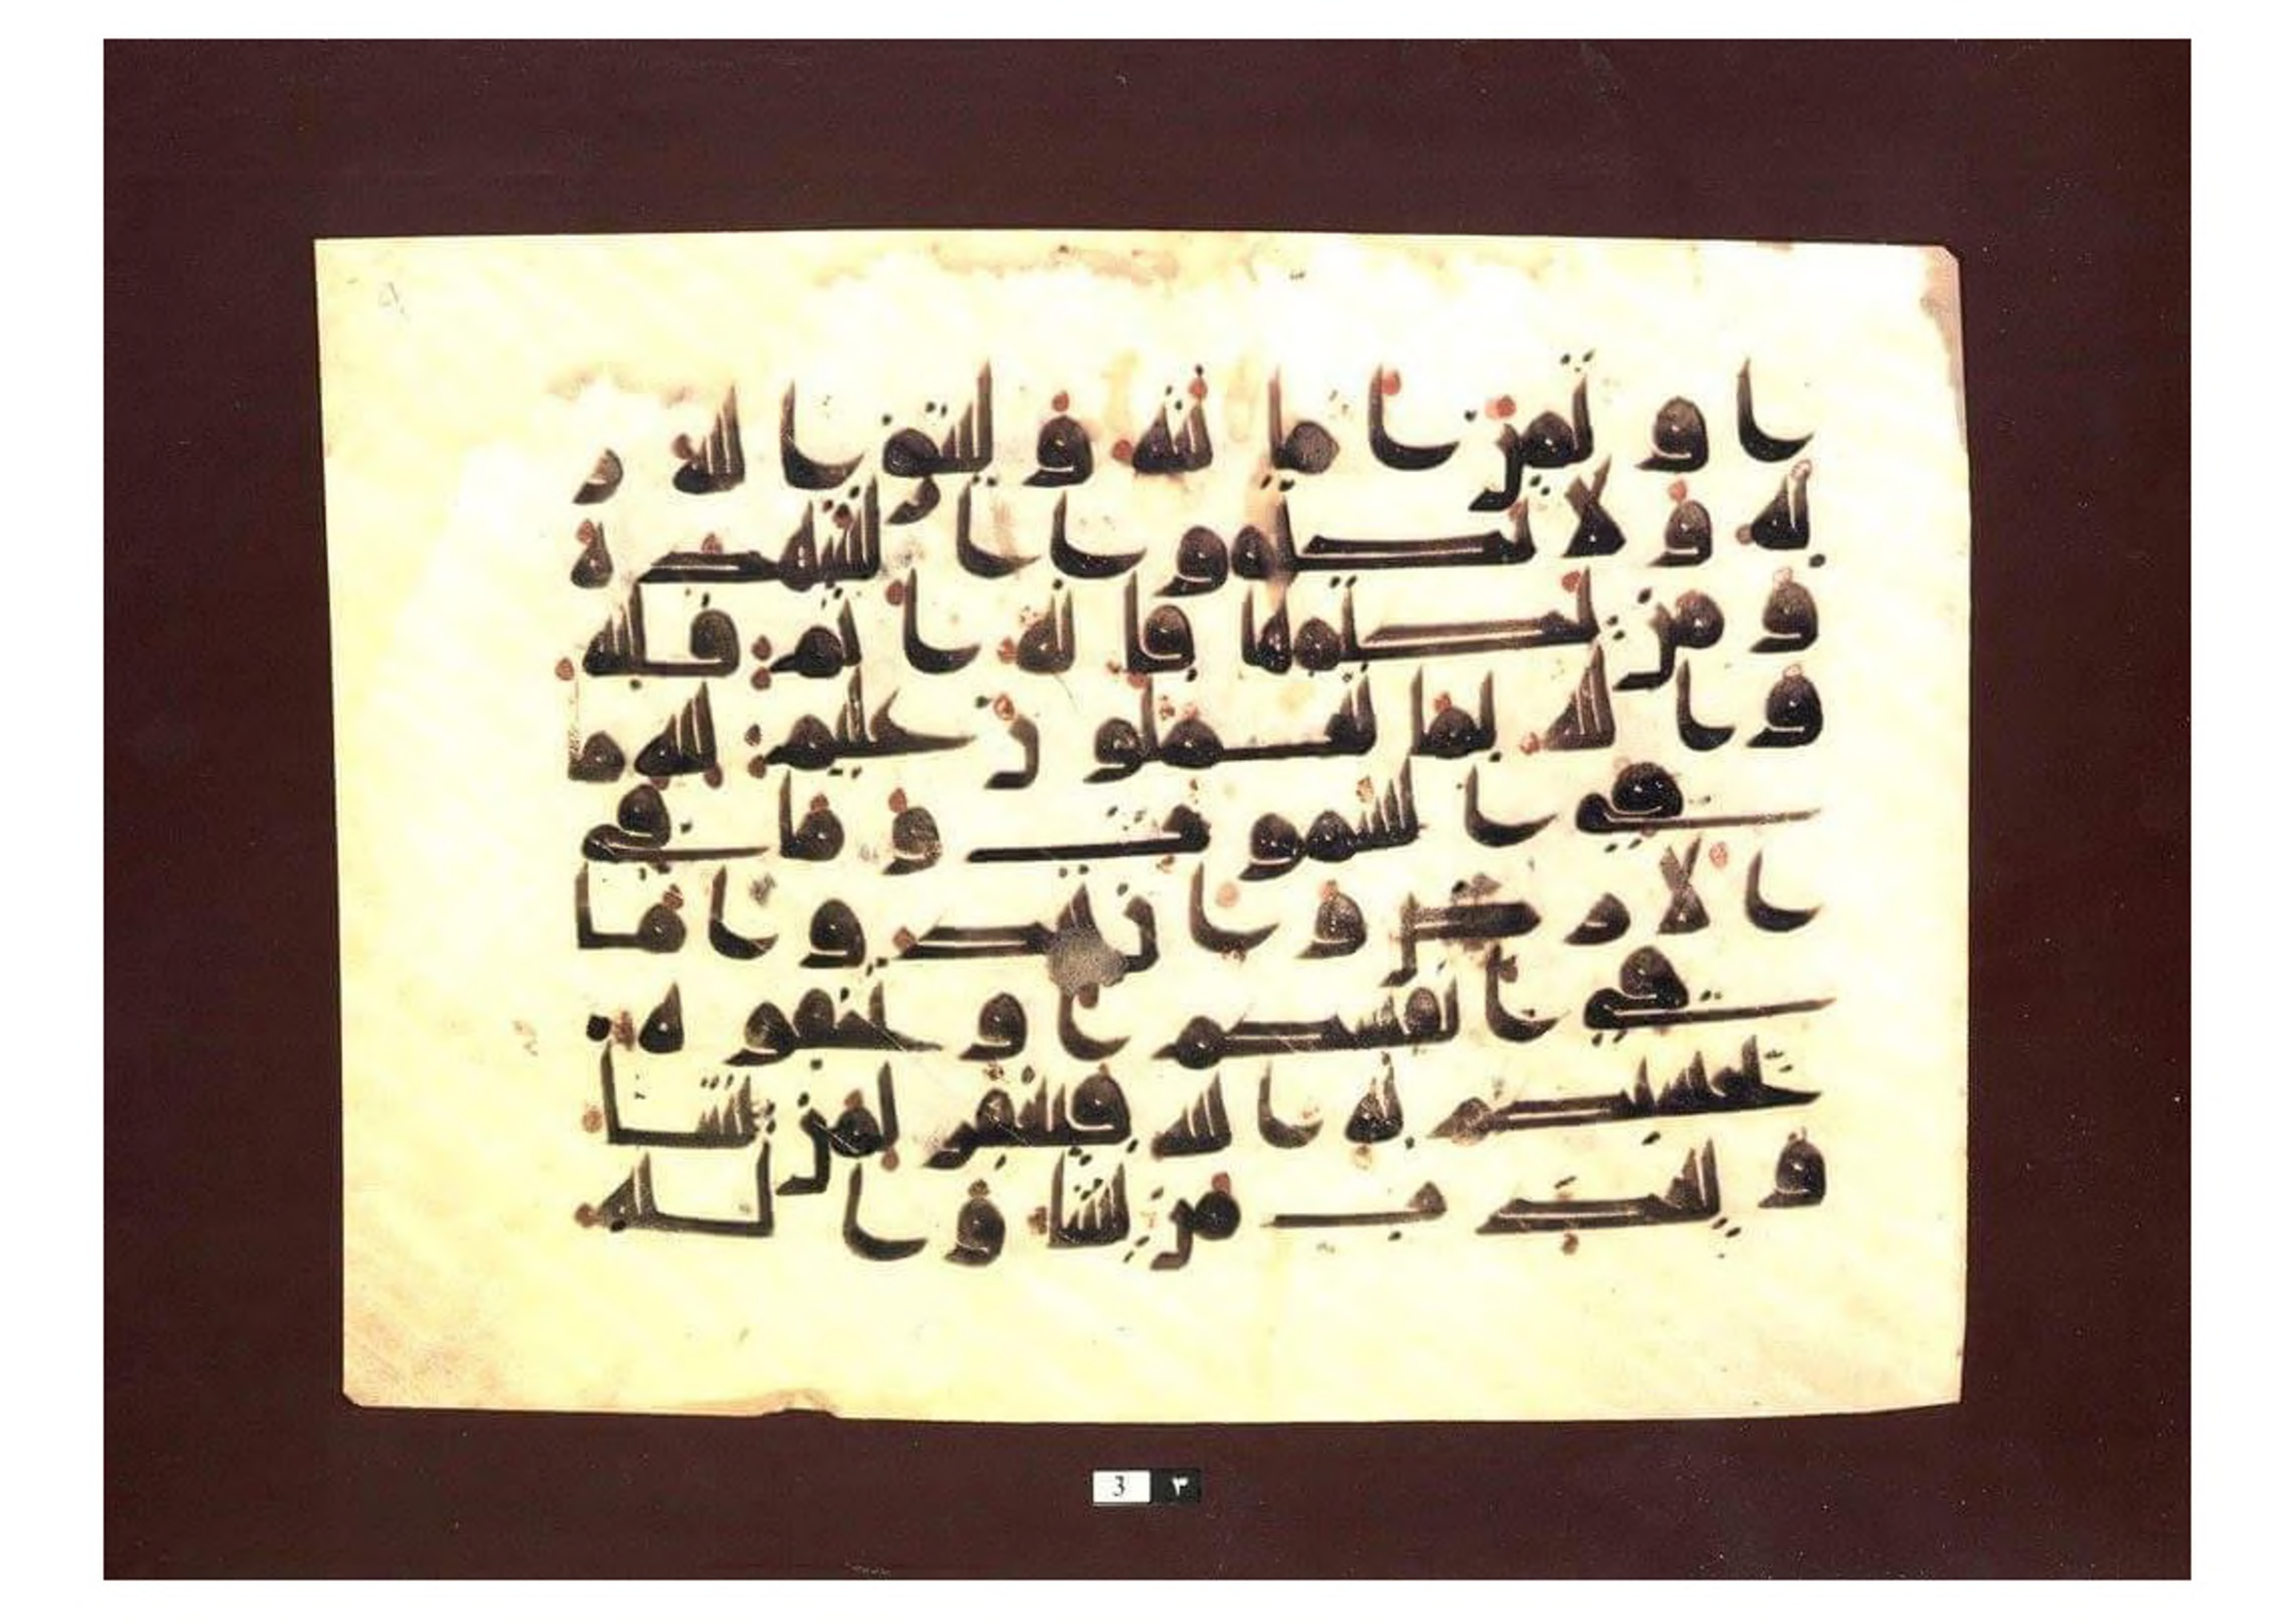 ا و تمن ا ما نته و ليتق ا لله ر
به و لا تكتمو ا ا لشهد ة
و من يكتمها فا نه ا ثم قلبه
و ا لله بما تعملو ن عليم لله ما
في ا لسمو ت و ما في
ا لا ر ض و ا ن تبد و ا ما
في ا نفسكم ا و تخفو ه
يحسبكم به ا لله فيغفر لمن يشا
و يعذ ب من يشا و ا لله
3 ٣